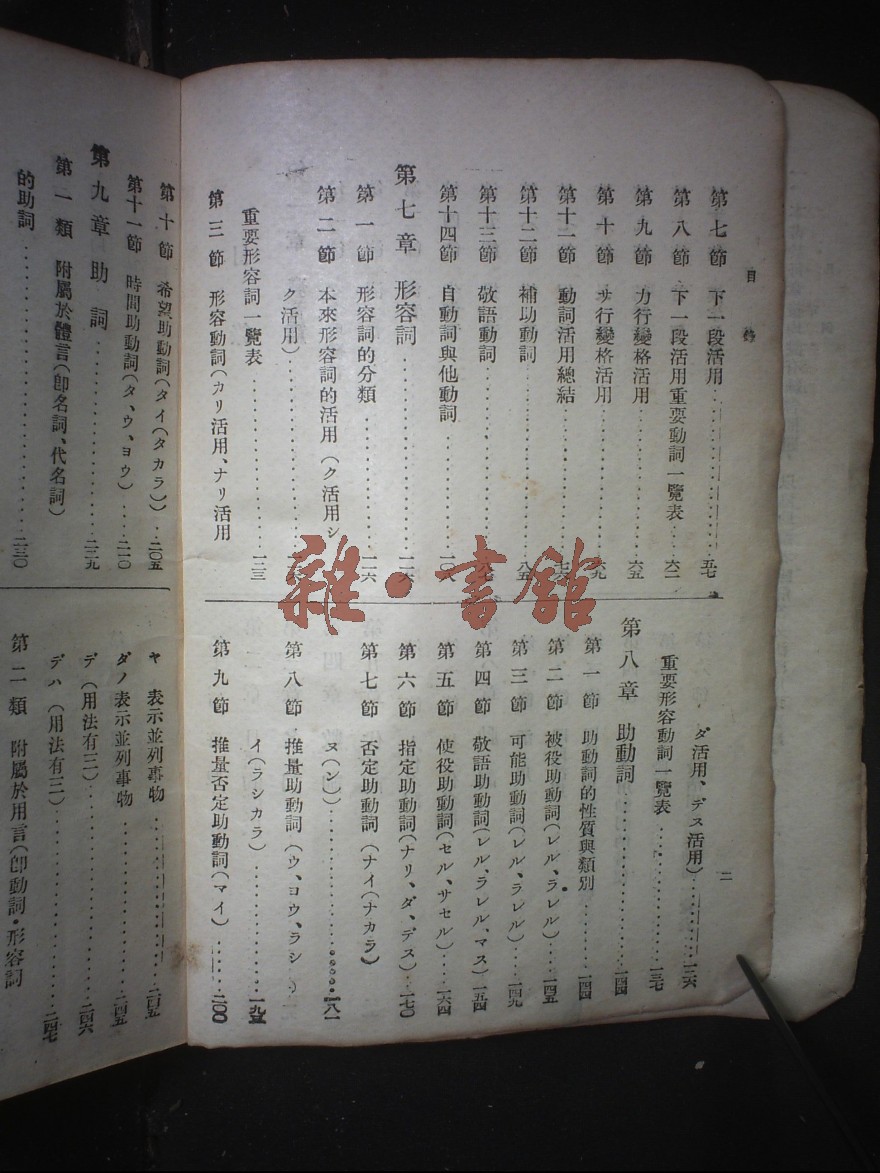 目錄
第七節 下一段活用……五七
第八節 下一段活用重要動詞一覽表……六二
第九節 カ行變格活用……六五
第十節 サ行變格活用……六九
第十一節 動詞活用總結……七六
第十二節 補助動詞……八五
第十三節 敬語動詞
第十四節 自動詞與他動詞……一〇八
第七章 形容詞……一一六
第一節 形容詞的分類……一一六
第二節 本來形容詞的活用(ク活用シ
ク活用)
重要形容詞一覽表……一二三
第三節 形容動詞(カリ活用、ナリ活用
二
ダ活用、デス活用)……一三六
重要形容動詞一覽表……一三七
第八章 助動詞……一四四
第一節 助動詞的性質與類別……一四四
第二節 被役助動詞(レル、ラレル)……一四五
第三節 可能助動詞(レル、ラレル)……一四九
第四節 敬語助動詞(レル、ラレル、マス)……一五四
第五節 使役助動詞(セル、サセル)……一六四
第六節 指定助動詞(ナリ、ダ、デス)……一七〇
第七節 否定助動詞(ナイ(ナカラ)
ヌ(ン))……一八一
第八節 推量助動詞(ウ、ヨウ、ラシ
イ(ラシカラ)……一九五
第九節 推量否定助動詞(マイ)……二〇〇
第十節 希望助動詞(タイ(タカラ))……二〇五
第十一節 時間助動詞(タ、ウ、ヨウ)……二一〇
第九章 助詞……二二九
第一類 附屬於體言(卽名詞、代名詞)
的助詞……二三〇
ヤ 表示並列事物……二四五
ダノ表示並列事物……二四五
デ(用法有三)……二四六
デハ(用法有三)……二四七
第二類 附屬於用言(卽動詞・形容詞
雜・書館